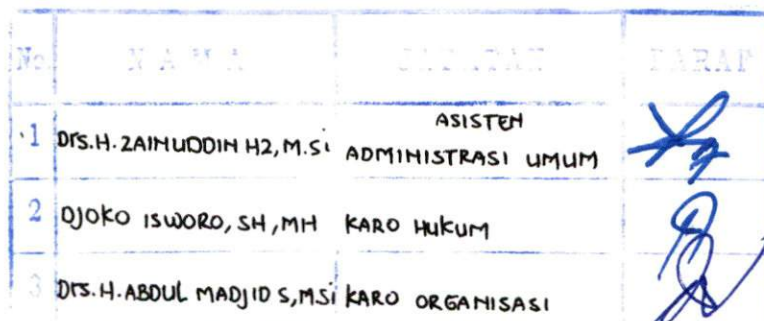 No NAMA JABATAN PARAF
1 Drs.H. ZAINUDDIN HZ, M.Si ASISTEN
ADMINISTRASI UMUM
2 DJOKO ISWORO, SH, MH KARO HUKUM
3 Drs.H. ABDUL MADJID S, M.Si KARO ORGANISASI